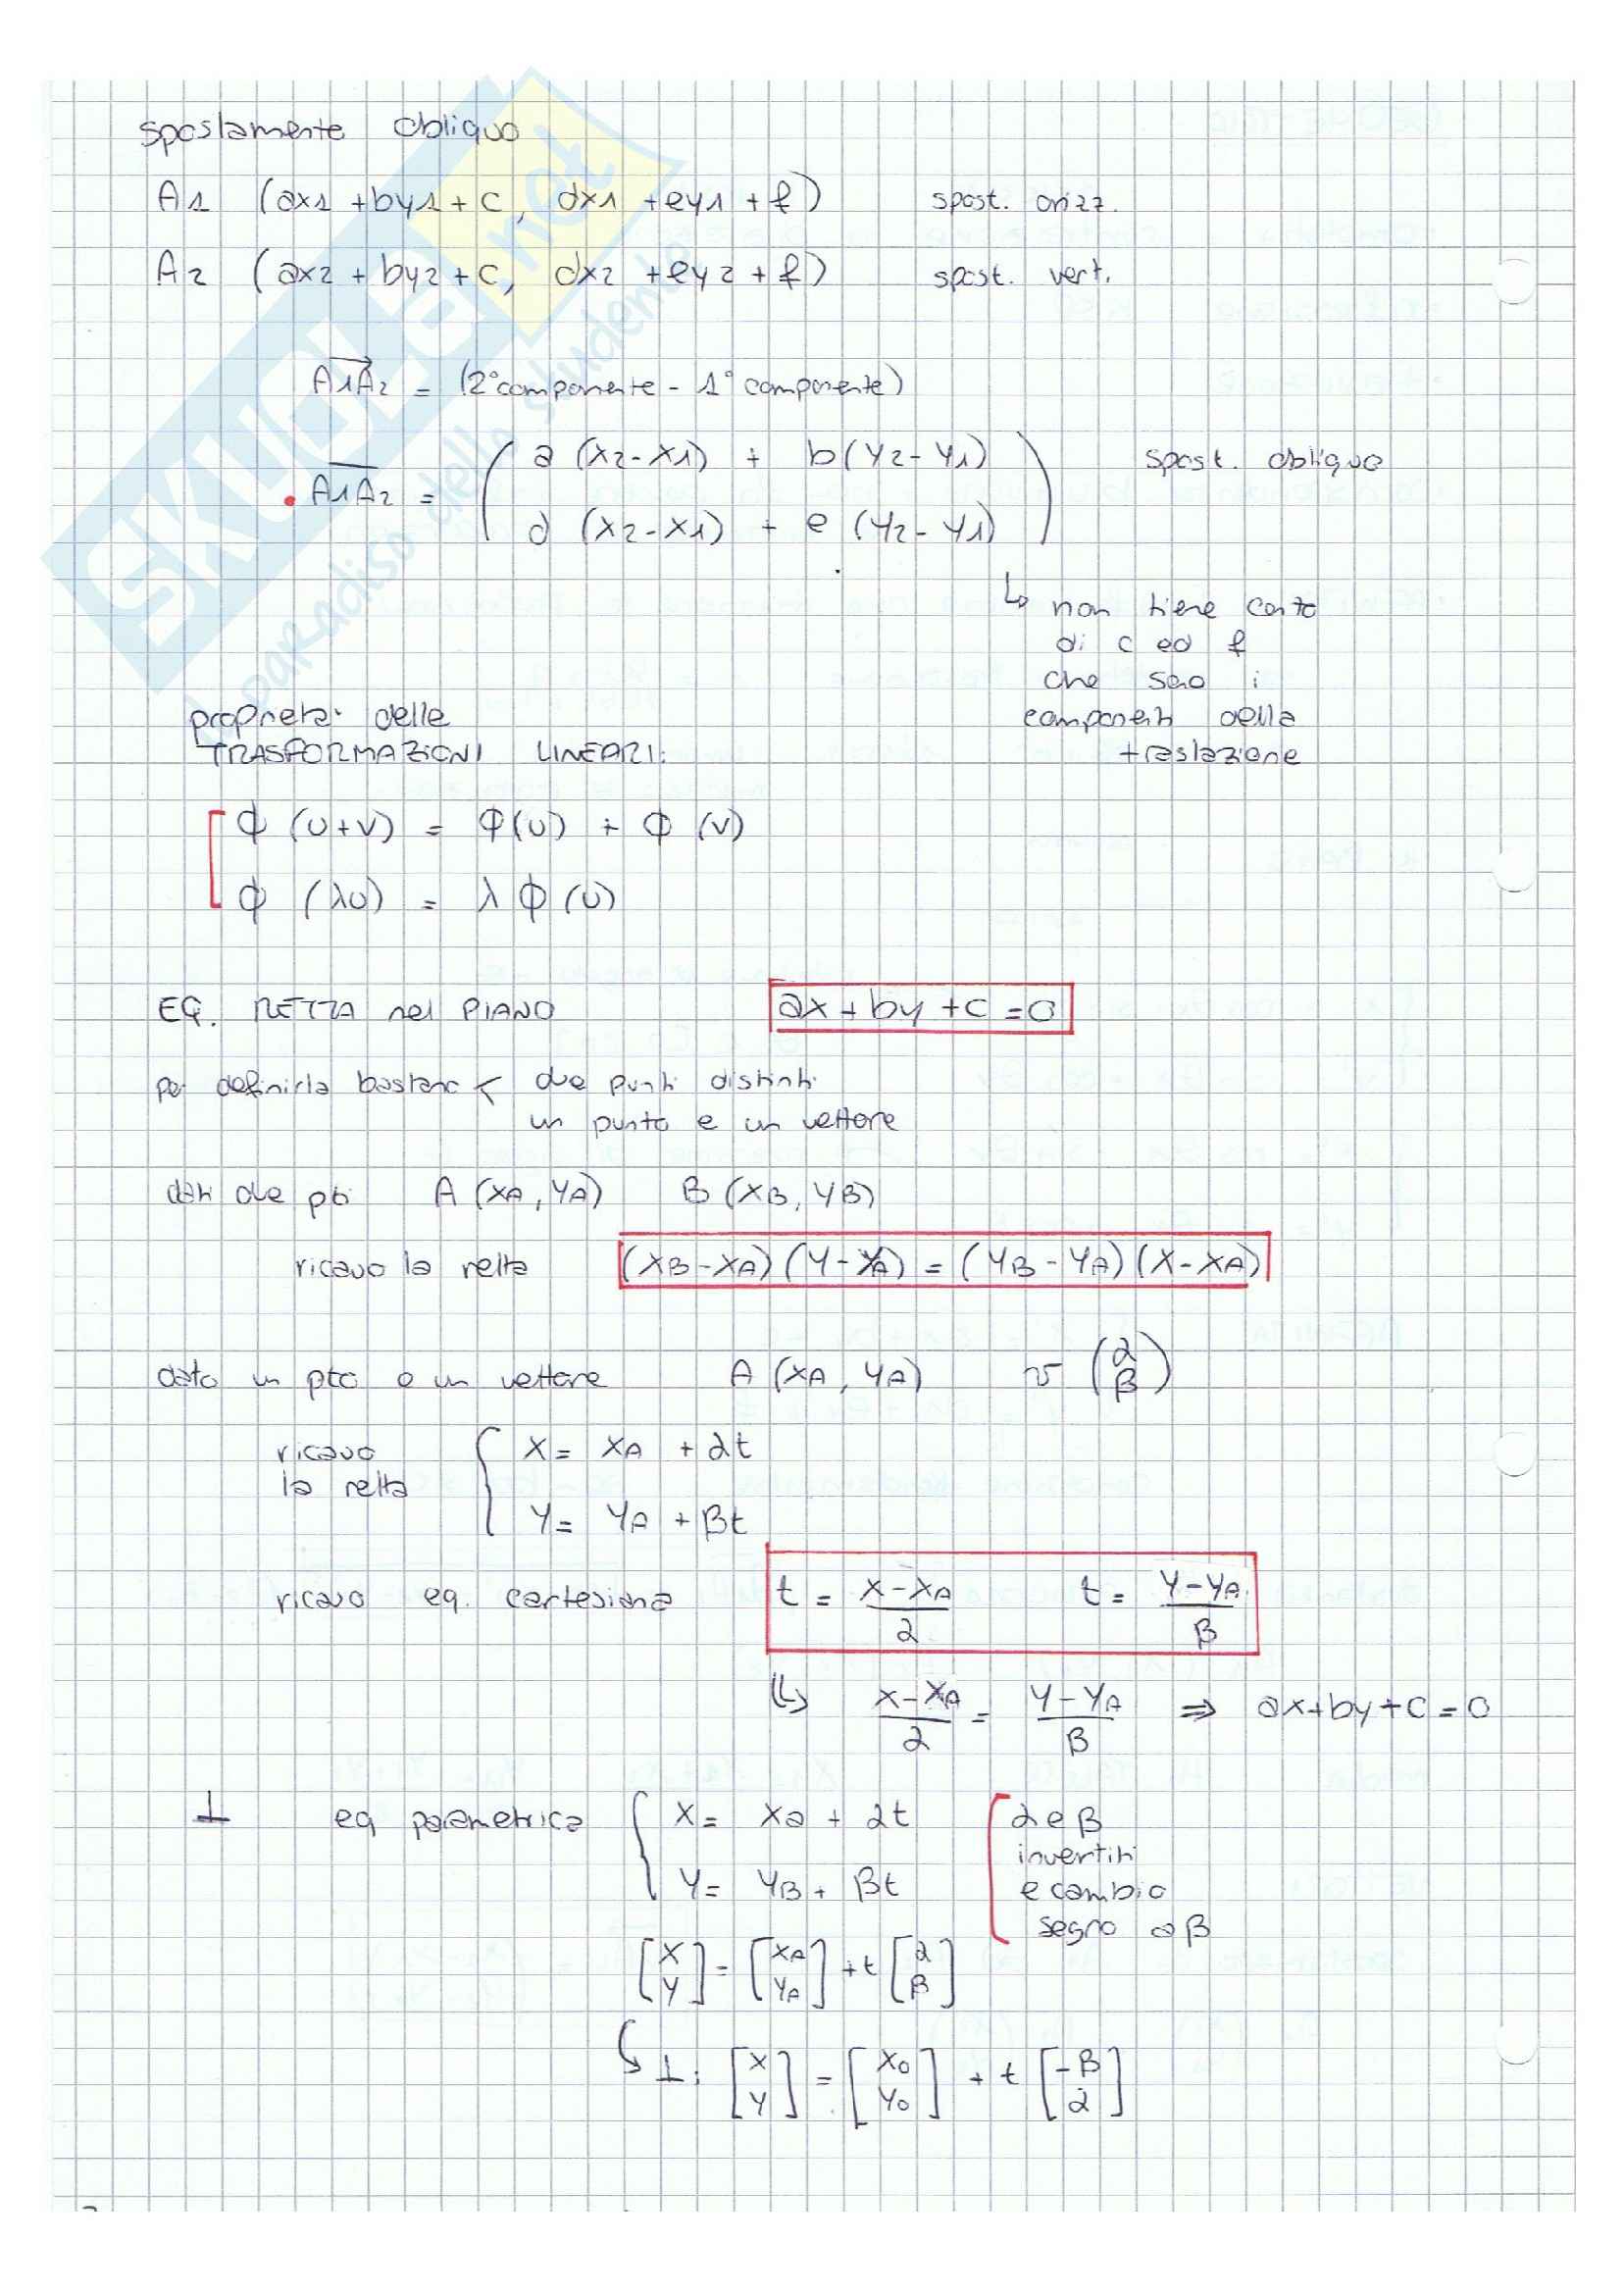 spostamento obliquo
A1 (ax1 + by1 + c, dx1 + ey1 + f) spost. orizz.
A2 (ax2 + by2 + c, dx2 + ey2 + f) spost. vert.
A1A2 = (2° componente - 1° componente)
A1A2 = ( a (x2-x1) + b(y2-y1) spost. obliquo
d (x2-x1) + e (y2-y1) )
↳ non tiene conto
di c ed f
che sono i
componenti della
traslazione
proprietà delle
TRASFORMAZIONI LINEARI:
ϕ (u+v) = ϕ(u) + ϕ (v)
ϕ (λu) = λ ϕ (u)
EQ. RETTA nel PIANO ax + by + c = 0
per definirla bastano < due punti distinti
un punto e un vettore
dati due pti A (xA, yA) B (xB, yB)
ricavo la retta (xB-xA)(y-yA) = (yB-yA)(x-xA)
dato un pto e un vettore A (xA, yA) v (α β)
ricavo
la retta { x = xA + αt
y = yA + βt
ricavo eq. cartesiana t = (x-xA)/α t = (y-yA)/β
↳ (x-xA)/α = (y-yA)/β ⇒ ax+by+c=0
⊥ eq parametrica { x = xa + αt
y = yB + βt
α e β
invertiti
e cambio
segno a β
[x y] = [xA yA] + t [α β]
↳ ⊥: [x y] = [x0 y0] + t [-β α]
SKUOLA.net
il paradiso dello skudente